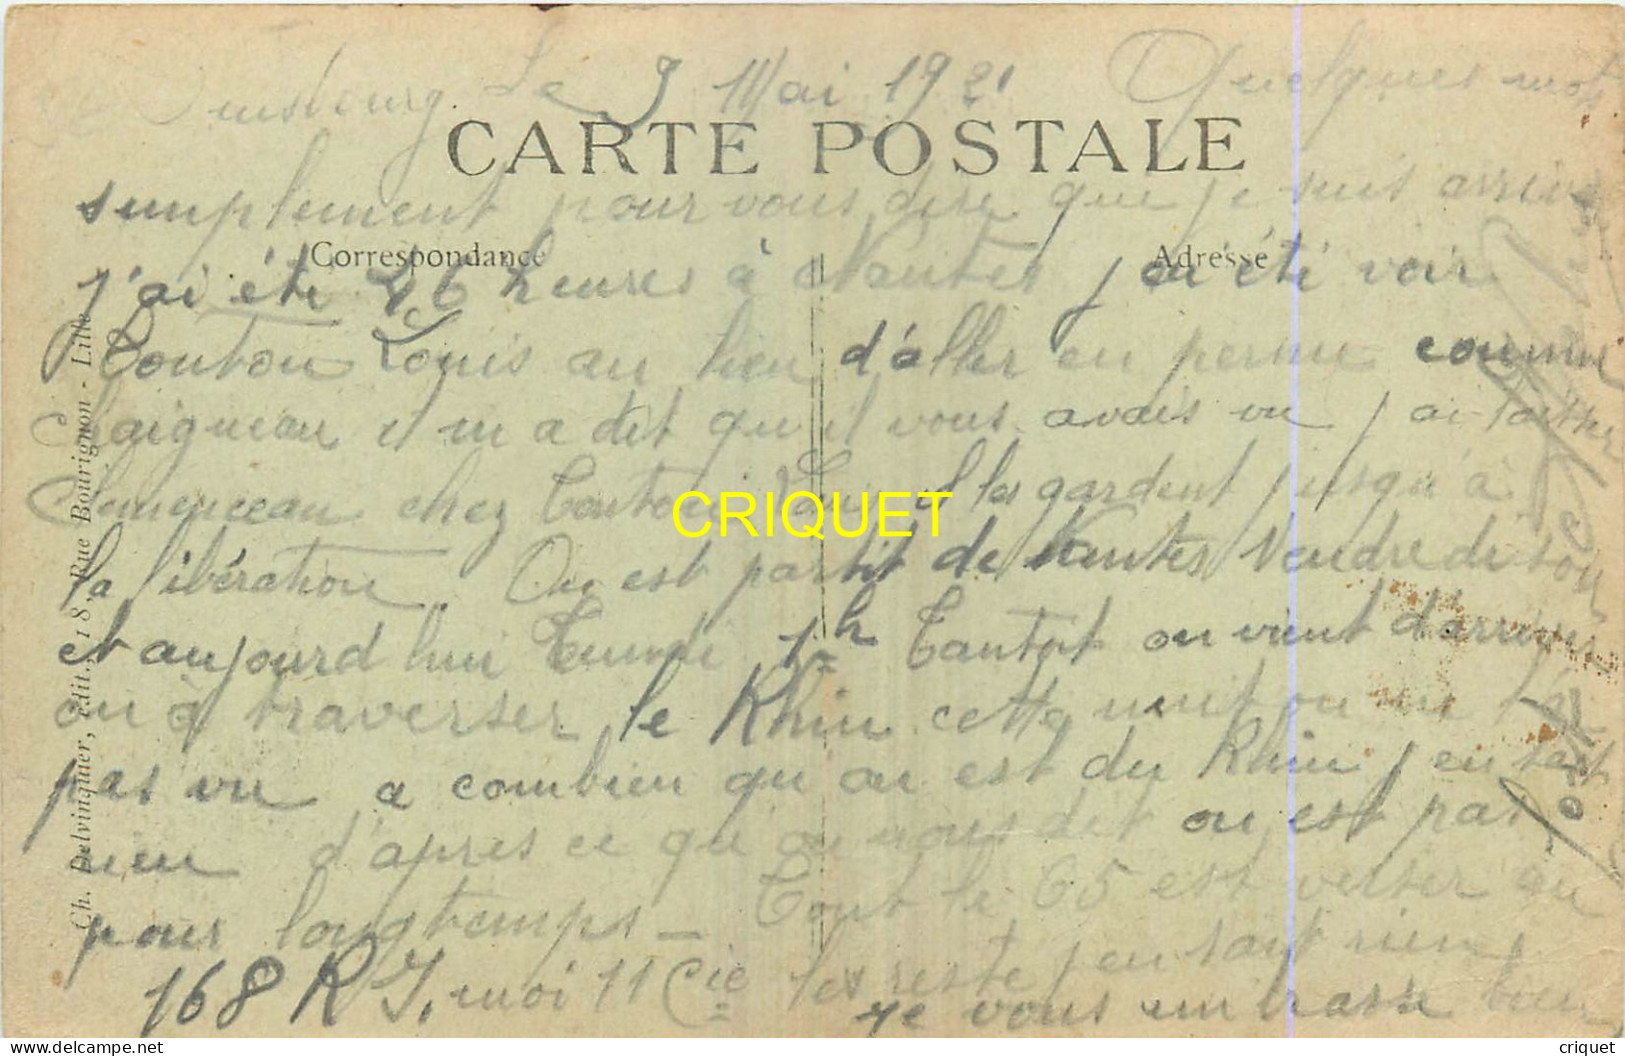 Duisbourg Le 9 Mai 1921 Quelques mots
CARTE POSTALE
simplement pour vous dire que je suis arrivé
Correspondance
Adresse
j'ai été 46 heures à Nantes j ai été voir
Tonton Louis au lieu d'aller en perme comme
Chaigneau il m a dit qu il vous avais vu j ai laisser
Clemenceau chez Tonton Louis il les gardent jusqu'à
la libération. On est partit de Nantes Vendredi soir
et aujourd hui Lundi 1h Tantot on vient d'arriver
on à traverser le Rhin cette nuit on ne l'ai
pas vu a combien qu on est du Rhin j en sait
rien d'après ce qu on nous dit on est pas
pour longtemps _ Tout le 65 est verser au
168 R I. moi 11 Cie les reste j en sait rien
Je vous embrasse bien
Ch. Delvinquer, édit., 18, Rue Bourignon - Lille
CRIQUET
criquet
www.delcampe.net